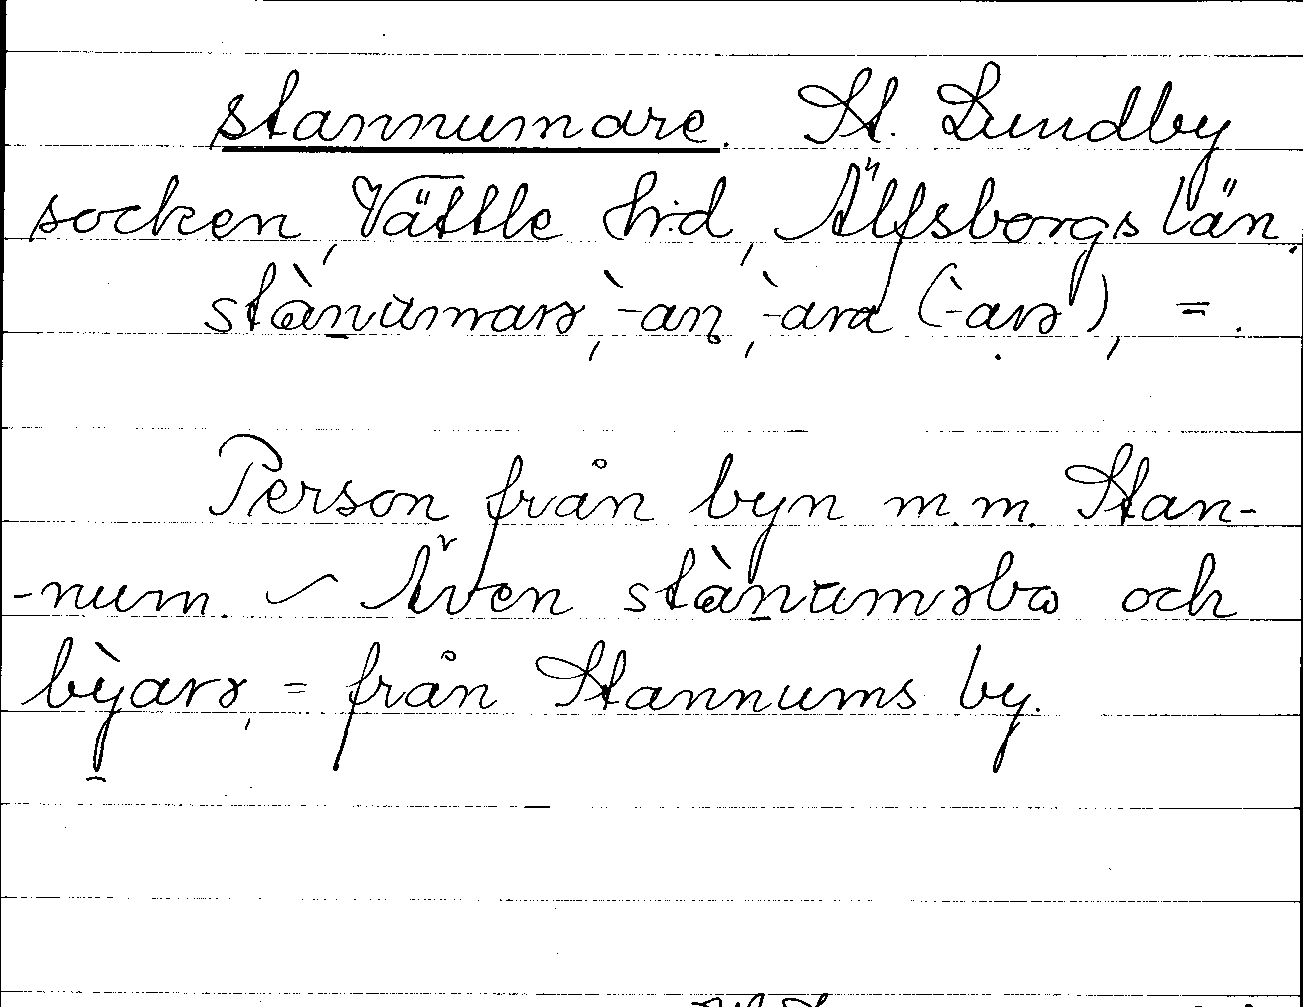 stannumare. St. Lundby
socken, Vättle hd, Älfsborgs län.
stànumarə, -an, -ara (-arə), =.
Person från byn m.m. Stan-
-num. Även stànumsbo och
bỳarə, = från Stannums by.